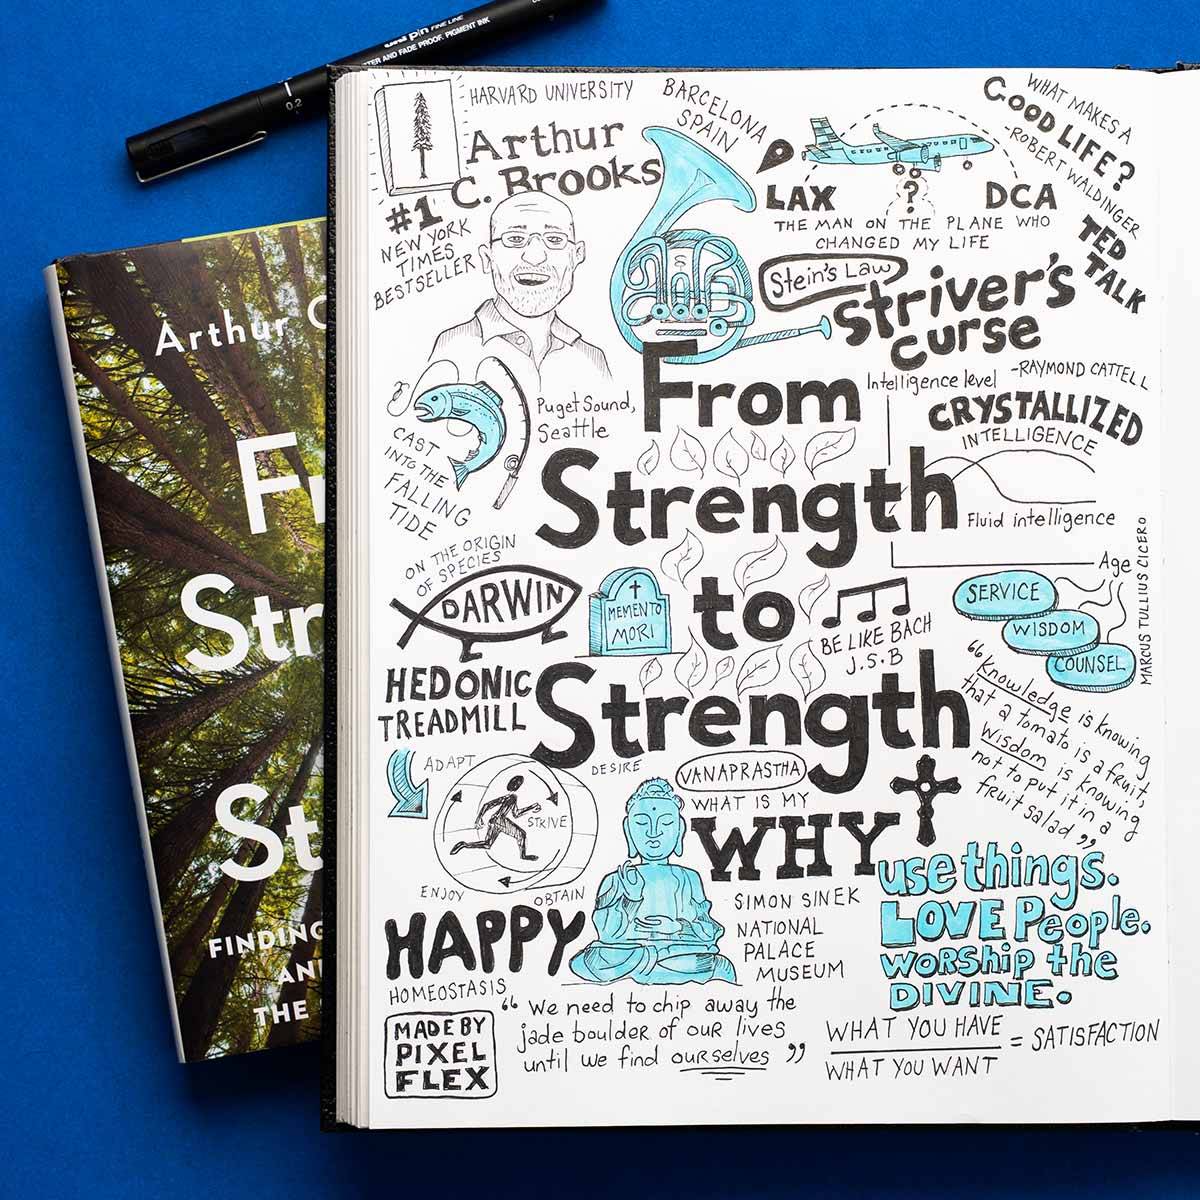 uni pin FINE LINE
WATER AND FADE PROOF. PIGMENT INK
0.2
Arthur C
Fr
Str
St
FINDING
AN
THE
HARVARD UNIVERSITY
Arthur
C. Brooks
#1
NEW YORK
TIMES
BESTSELLER
BARCELONA
SPAIN
LAX
?
DCA
THE MAN ON THE PLANE WHO
CHANGED MY LIFE
WHAT MAKES A
GOOD LIFE?
-ROBERT WALDINGER
TED
TALK
Stein's Law
Striver's
curse
From
Strength
to
Strength
Intelligence level
-RAYMOND CATTELL
CRYSTALLIZED
INTELLIGENCE
Fluid intelligence
Age
Puget Sound,
Seattle
CAST
INTO THE
FALLING
TIDE
ON THE ORIGIN
OF SPECIES
DARWIN
MEMENTO
MORI
BE LIKE BACH
J.S.B
SERVICE
WISDOM
COUNSEL
MARCUS TULLIUS CICERO
"Knowledge is knowing
that a tomato is a fruit,
Wisdom is knowing
not to put it in a
fruit salad"
HEDONIC
TREADMILL
ADAPT
DESIRE
STRIVE
ENJOY
OBTAIN
HAPPY
HOMEOSTASIS
VANAPRASTHA
WHAT IS MY
WHY
SIMON SINEK
NATIONAL
PALACE
MUSEUM
use things.
LOVE People.
WORSHIP the
DIVINE.
MADE BY
PIXEL
FLEX
"We need to chip away the
jade boulder of our lives
until we find ourselves"
WHAT YOU HAVE
= SATISFACTION
WHAT YOU WANT